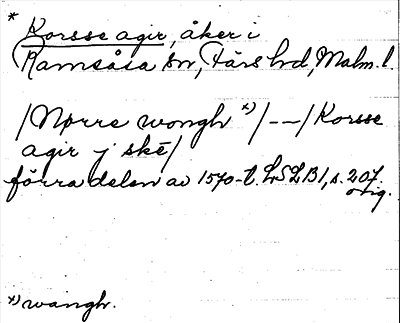 * Korsse agir, åker i
Ramsåsa sn, Färs hd, Malm. l.
/Nørre wongh x)/ -- /Korsse
agir j ske/
förra delen av 1570-t. LSLB1, s. 207.
orig.
x) wangh.